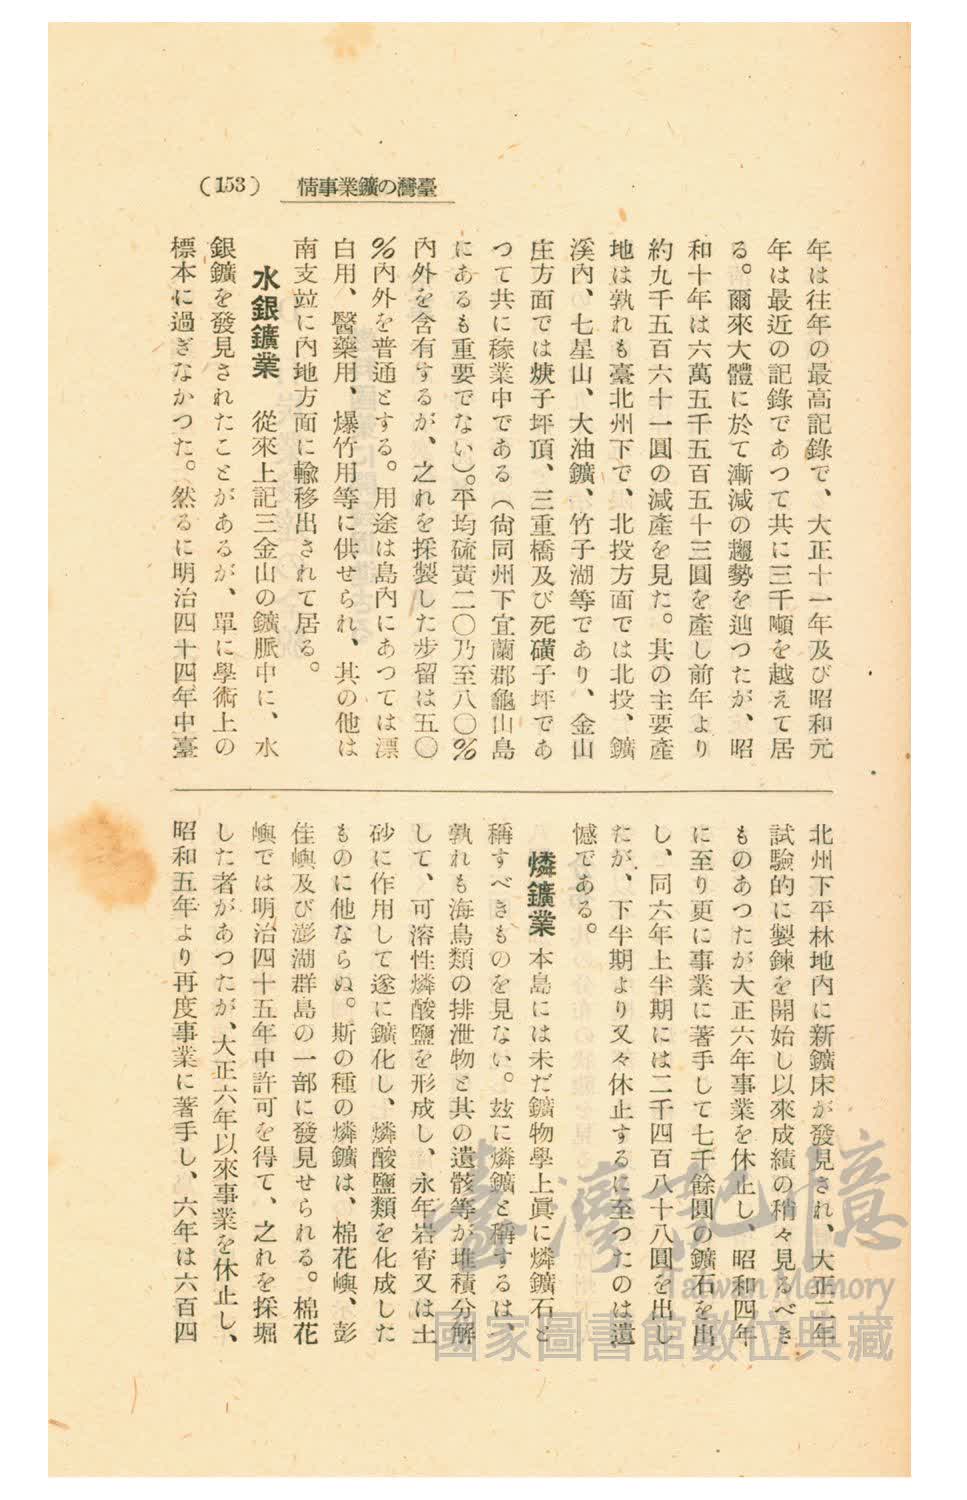 (153) 情事業鑛の灣臺
年は往年の最高記錄で、大正十一年及び昭和元
年は最近の記錄であつて共に三千噸を越えて居
る。爾來大體に於て漸減の趨勢を辿つたが、昭
和十年は六萬五千五百五十三圓を產し前年より
約九千五百六十一圓の減產を見た。其の主要產
地は孰れも臺北州下で、北投方面では北投、鑛
溪內、七星山、大油鑛、竹子湖等であり、金山
庄方面では焿子坪頂、三重橋及び死磺子坪であ
つて共に稼業中である(尙同州下宜蘭郡龜山島
にあるも重要でない)。平均硫黃二〇乃至八〇%
內外を含有するが、之れを採製した步留は五〇
%內外を普通とする。用途は島內にあつては漂
白用、醫藥用、爆竹用等に供せられ、其の他は
南支竝に內地方面に輸移出されて居る。
水銀鑛業、從來上記三金山の鑛脈中に、水
銀鑛を發見されたことがあるが、單に學術上の
標本に過ぎなかつた。然るに明治四十四年中臺
北州下平林地內に新鑛床が發見され、大正二年
試驗的に製鍊を開始し以來成績の稍々見るべき
ものあつたが大正六年事業を休止し、昭和四年
に至り更に事業に著手して七千餘圓の鑛石を出
し、同六年上半期には二千四百八十八圓を出し
たが、下半期より又々休止するに至つたのは遺
憾である。
燐鑛業 本島には未だ鑛物學上眞に燐鑛石と
稱すべきものを見ない。玆に燐鑛と稱するは、
孰れも海鳥類の排泄物と其の遺骸等が堆積分解
して、可溶性燐酸鹽を形成し、永年岩窖又は土
砂に作用して遂に鑛化し、燐酸鹽類を化成した
ものに他ならぬ。斯の種の燐鑛は、棉花嶼、彭
佳嶼及び澎湖群島の一部に發見せられる。棉花
嶼では明治四十五年中許可を得て、之れを採堀
した者があつたが、大正六年以來事業を休止し、
昭和五年より再度事業に著手し、六年は六百四
臺灣記憶
Taiwan Memory
國家圖書館數位典藏